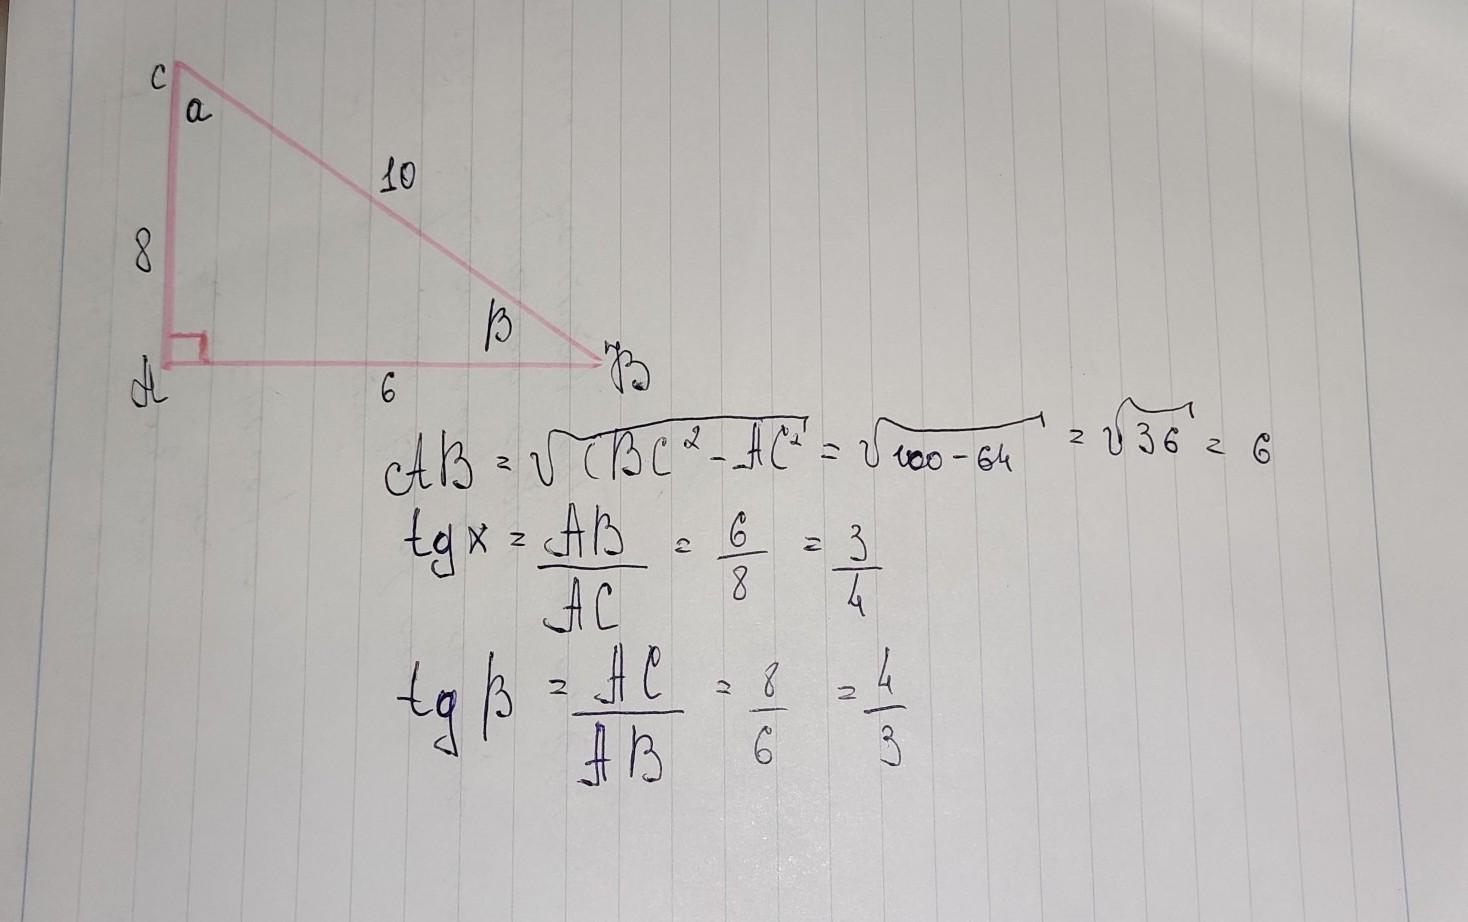 C
a
10
8
β
A
B
6
AB = √(BC² - AC² = √100 - 64 = √36 = 6
tg x = AB/AC = 6/8 = 3/4
tg β = AC/AB = 8/6 = 4/3